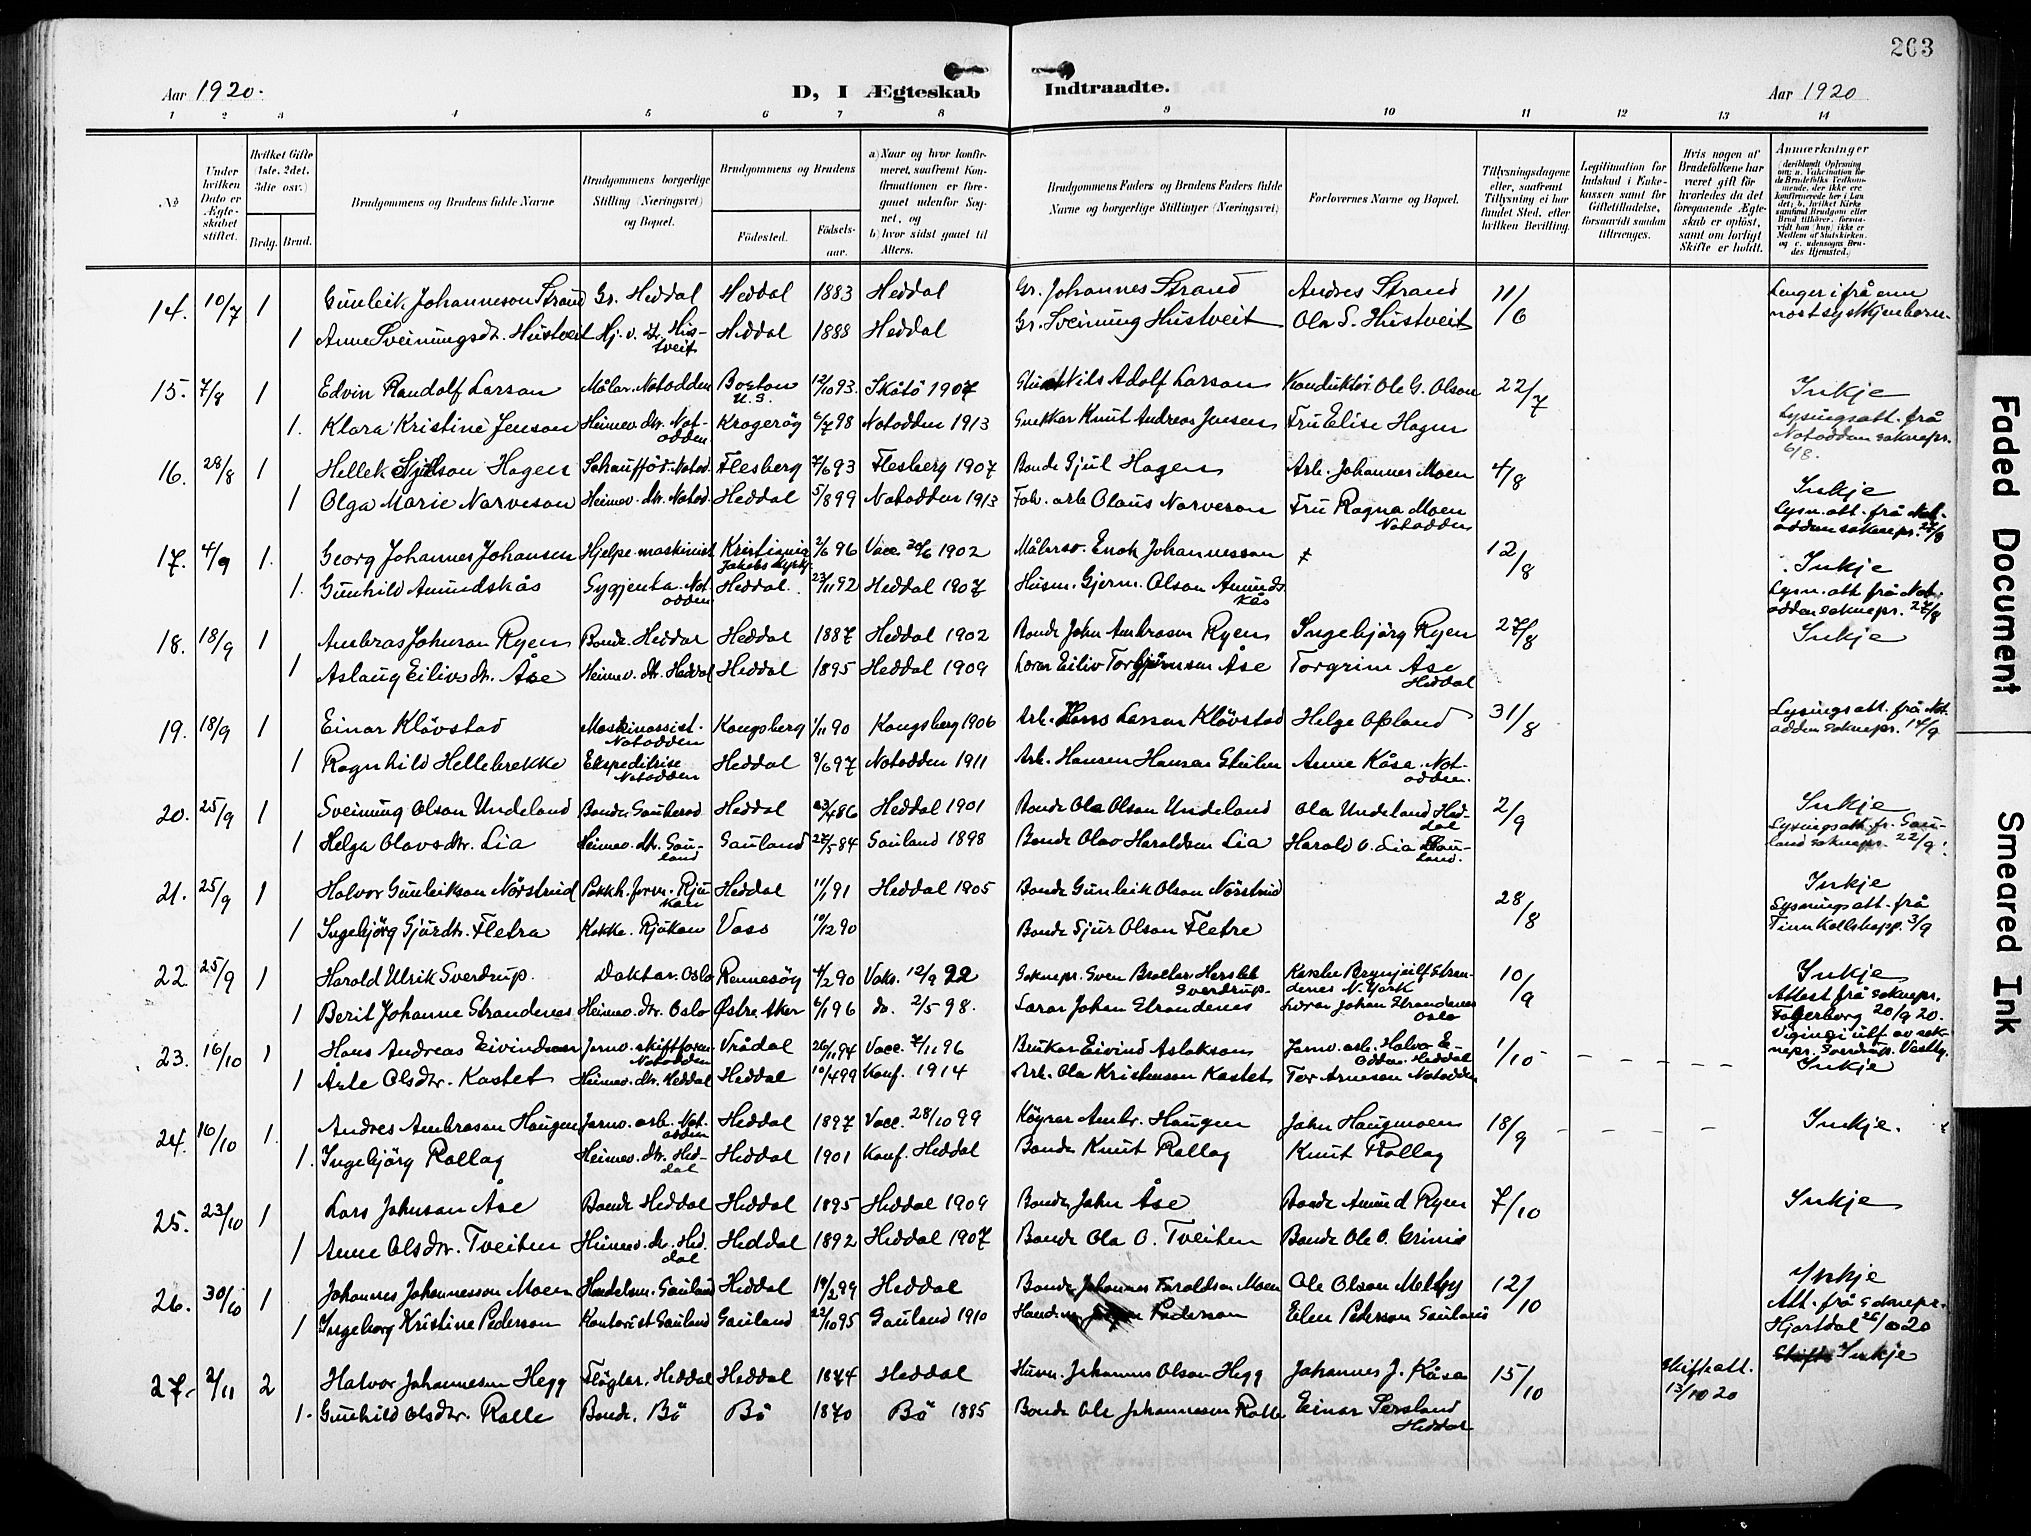 263
Aar 1920.
D, I Ægteskab
Indtraadte.
Aar 1920
1 2 3 4 5 6 7 8 9 10 11 12 13 14
No
Under hvilken Dato er Ægteskabet stiftet.
Hvilket Gifte (1ste, 2det, 3die osv.)
Brdg. Brud.
Brudgommens og Brudens fulde Navne
Brudgommens borgerlige Stilling (Næringsvei) og Bopæl.
Brudgommens og Brudens
Fødested.
Fødselsaar.
a) Naar og hvor konfirmeret, saafremt Konfirmationen er foregaaet udenfor Sognet, og
b) hvor sidst gaaet til Alters.
Brudgommens Faders og Brudens Faders fulde Navne og borgerlige Stillinger (Næringsvei)
Forlovernes Navne og Bopæl.
Tillysningsdagene eller, saafremt Tillysning ei har fundet Sted, efter hvilken Bevilling.
Legitimation for Indskud i Enkekassen samt for Giftetilladelse, forsaavidt saadan tiltrænges.
Hvis nogen af Brudefolkene har været gift før hvorledes da det foregaaende Ægteskab er opløst, samt om lovligt Skifte er holdt.
Anmærkninger
14. 10/7 1 Gunleik Johanneson Strand Gr. Heddal Heddal 1883 Heddal Gr. Johannes Strand Andres Strand 11/6 Lenger ifrå enn
1 Anne Sveinungsdr. Hustveit Hj. v. Hustveit Heddal 1888 Heddal Gr. Sveinung Hustveit Ola S. Hustveit
15. 7/8 1 Edvin Randolf Larson Målar. Notodden Boston U.S. 12/10 93. Skåtö 1907 Nils Adolf Larson Konduktör Ole G. Olson 22/7 Inkje
1. Klara Kristine Jenson Heimev. dr. Notodden Kragerög 6/7 98 Notodden 1913 Snekkar Knut Andreas Jensen Fru Elise Hagen Lysingsatt. frå Notodden soknepr. 6/8.
16. 28/8 1 Hellek Hagen Notod. Flesberg 7/6 93 Flesberg 1907 Bonde Gjul Hagen Arb. Johannes Moen 4/8 Inkje
1 Olga Marie Narveson Heimev. dr. Notod. Heddal 5/8 99 Notodden 1913 Fab. arb Olaus Narveson Fru Ragna Moen Notodden Lysn. att. frå Notodden soknepr. 27/8
17. 4/9 1. Georg Johannes Johansen Hjelpe-maskinist Kristiania Jakobs kyrkj. 2/6 96 Vacc. 1902 Enok Johannesson 12/8 Inkje
1. Gunhild Amundskås Gygjenta. Notodden Heddal 23/11 92 Heddal 1907 Husm. Gjerm. Olson Amundskås Lysn. att frå Notodden soknepr. 27/8
18. 18/9 1 Ambros Johnson Ryen Bonde Heddal Heddal 1887 Heddal 1902 Bonde John Ambroson Ryen Ingebjörg Ryen 27/8 Inkje
1 Aslaug Eilivsdr. Åse Heimev. dr. Heddal Heddal 1895 Heddal 1909 Lærar Eiliv Torbjörnsen Åse Torgrim Åse Heddal
19. 18/9 1 Einar Klövstad Maskinassist. Notodden Kongsberg 1/11 90 Kongsberg 1906 Arb. Hans Larson Klövstad Helge 31/8 Lysingsatt. frå Notodden soknepr. 14/9
1 Ragnhild Hellebrekke Ekspeditrise Notodden Heddal 8/6 97 Notodden 1911 Arb. Hansen Anne Kåsa. Notodden.
20. 25/9 1 Sveinung Olson Undeland Bonde Sauherad Heddal 23/4 86 Heddal 1901 Bonde Ola Olson Undeland Ola Undeland Heddal 2/9 Inkje
1 Helga Olavsdr. Lia Heimev. dr. Sauland Sauland 27/5 84 Sauland 1898 Bonde Olav Haroldsen Lia Harald O. Lia Sauland. Lysingsatt. fr. Sauland soknepr. 22/9.
21. 25/9 1 Halvor Gunleikson Nörstrud Pakkh. form. Rjukan Heddal 11/1 91 Heddal 1905 Bonde Gunleik Olson Nörstrud 28/8 Inkje
1 Ingebjörg Gjurdr. Fletra Kokke. Rjukan Voss 10/12 90 Bonde Sjur Olson Fletre Lysningsatt. frå Tinn Kallskapp. 3/9
22 25/9 1 Harald Ulrik Sverdrup. Doktor. Oslo Rennesöy 4/2 90 Vaks. 12/9 92 Soknepr. Sven Brodtar Herslet Sverdrup. Kassler Brynjulf Strandenes N. York 10/9 Inkje
1 Berit Johanne Strandenes Heimev. dr. Oslo Östre Aker 6/1 96 do. 2/5 98. Lærar Johan Strandenes Lærar Johan Strandenes Oslo Attest frå soknepr. Fagerborg 20/9 20. Vigingi utf. av soknepr. Sverdrup. Vestby.
23. 16/10 1 Hans Andreas Eivindson Jarnv. skiftform. Notodden Vrådal 26/11 94 Vacc. 7/11 96 Brukar Eivind Aslakson Jarnv. arb. Halvor E. Odden. Heddal 1/10 - - - - Inkje
1 Åste Olsdtr. Kastet Heimev. dr. Heddal Heddal 10/4 99 Konf. 1914 Arb. Ola Kristenson Kastet Tor Arneson Notodden
24. 16/10 1. Andres Ambroson Haugen Jarnv. arb. Notodden Heddal 1897 Vacc. 28/10 99 Köyrar Ambr. Haugen John Haugmoen 18/9 - - - - Inkje.
1. Ingebjörg Rollag Heimev. dr. Heddal Heddal 1901 Konf. Heddal Bonde Knut Rollag Knut Rollag
25. 23/10 1 Lars Johnson Åse Bonde Heddal Heddal 1895 Heddal 1909 Bonde John Åse Bonde Amund Ryen 7/10 Inkje
1 Anne Olsdtr. Tveiten Heimev. dr. Heddal Heddal 1892 Heddal 1907 Bonde Ola O. Tveiten Bonde Ole O. Grimis
26. 30/10 1 Johannes Johannesson Moen Handelsm. Sauland Heddal 19/2 99 Heddal Bonde Johannes Taraldson Moen Ole Olson Melby 12/10 Inkje
1 Ingeborg Kristine Pederson Kontorist Sauland Sauland 22/10 95 Sauland 1910 Handlm. Pederson Elen Pederson Sauland Att. frå Soknepr. Hjartdal 26/10 20
27. 2/11 2 Halvor Johannesen Hegg Fløytar. Heddal Heddal 1874 Heddal Husm. Johannes Olson Hegg Johannes J. Kåsa 15/10 Skifteatt. 13/10 20 Inkje
1. Gunhild Olsdtr. Rolle Bonde. Bö Bö 1870 Bö 1885 Bonde Ole Johanneson Rolle Einar Heddal
Faded Document
Smeared Ink